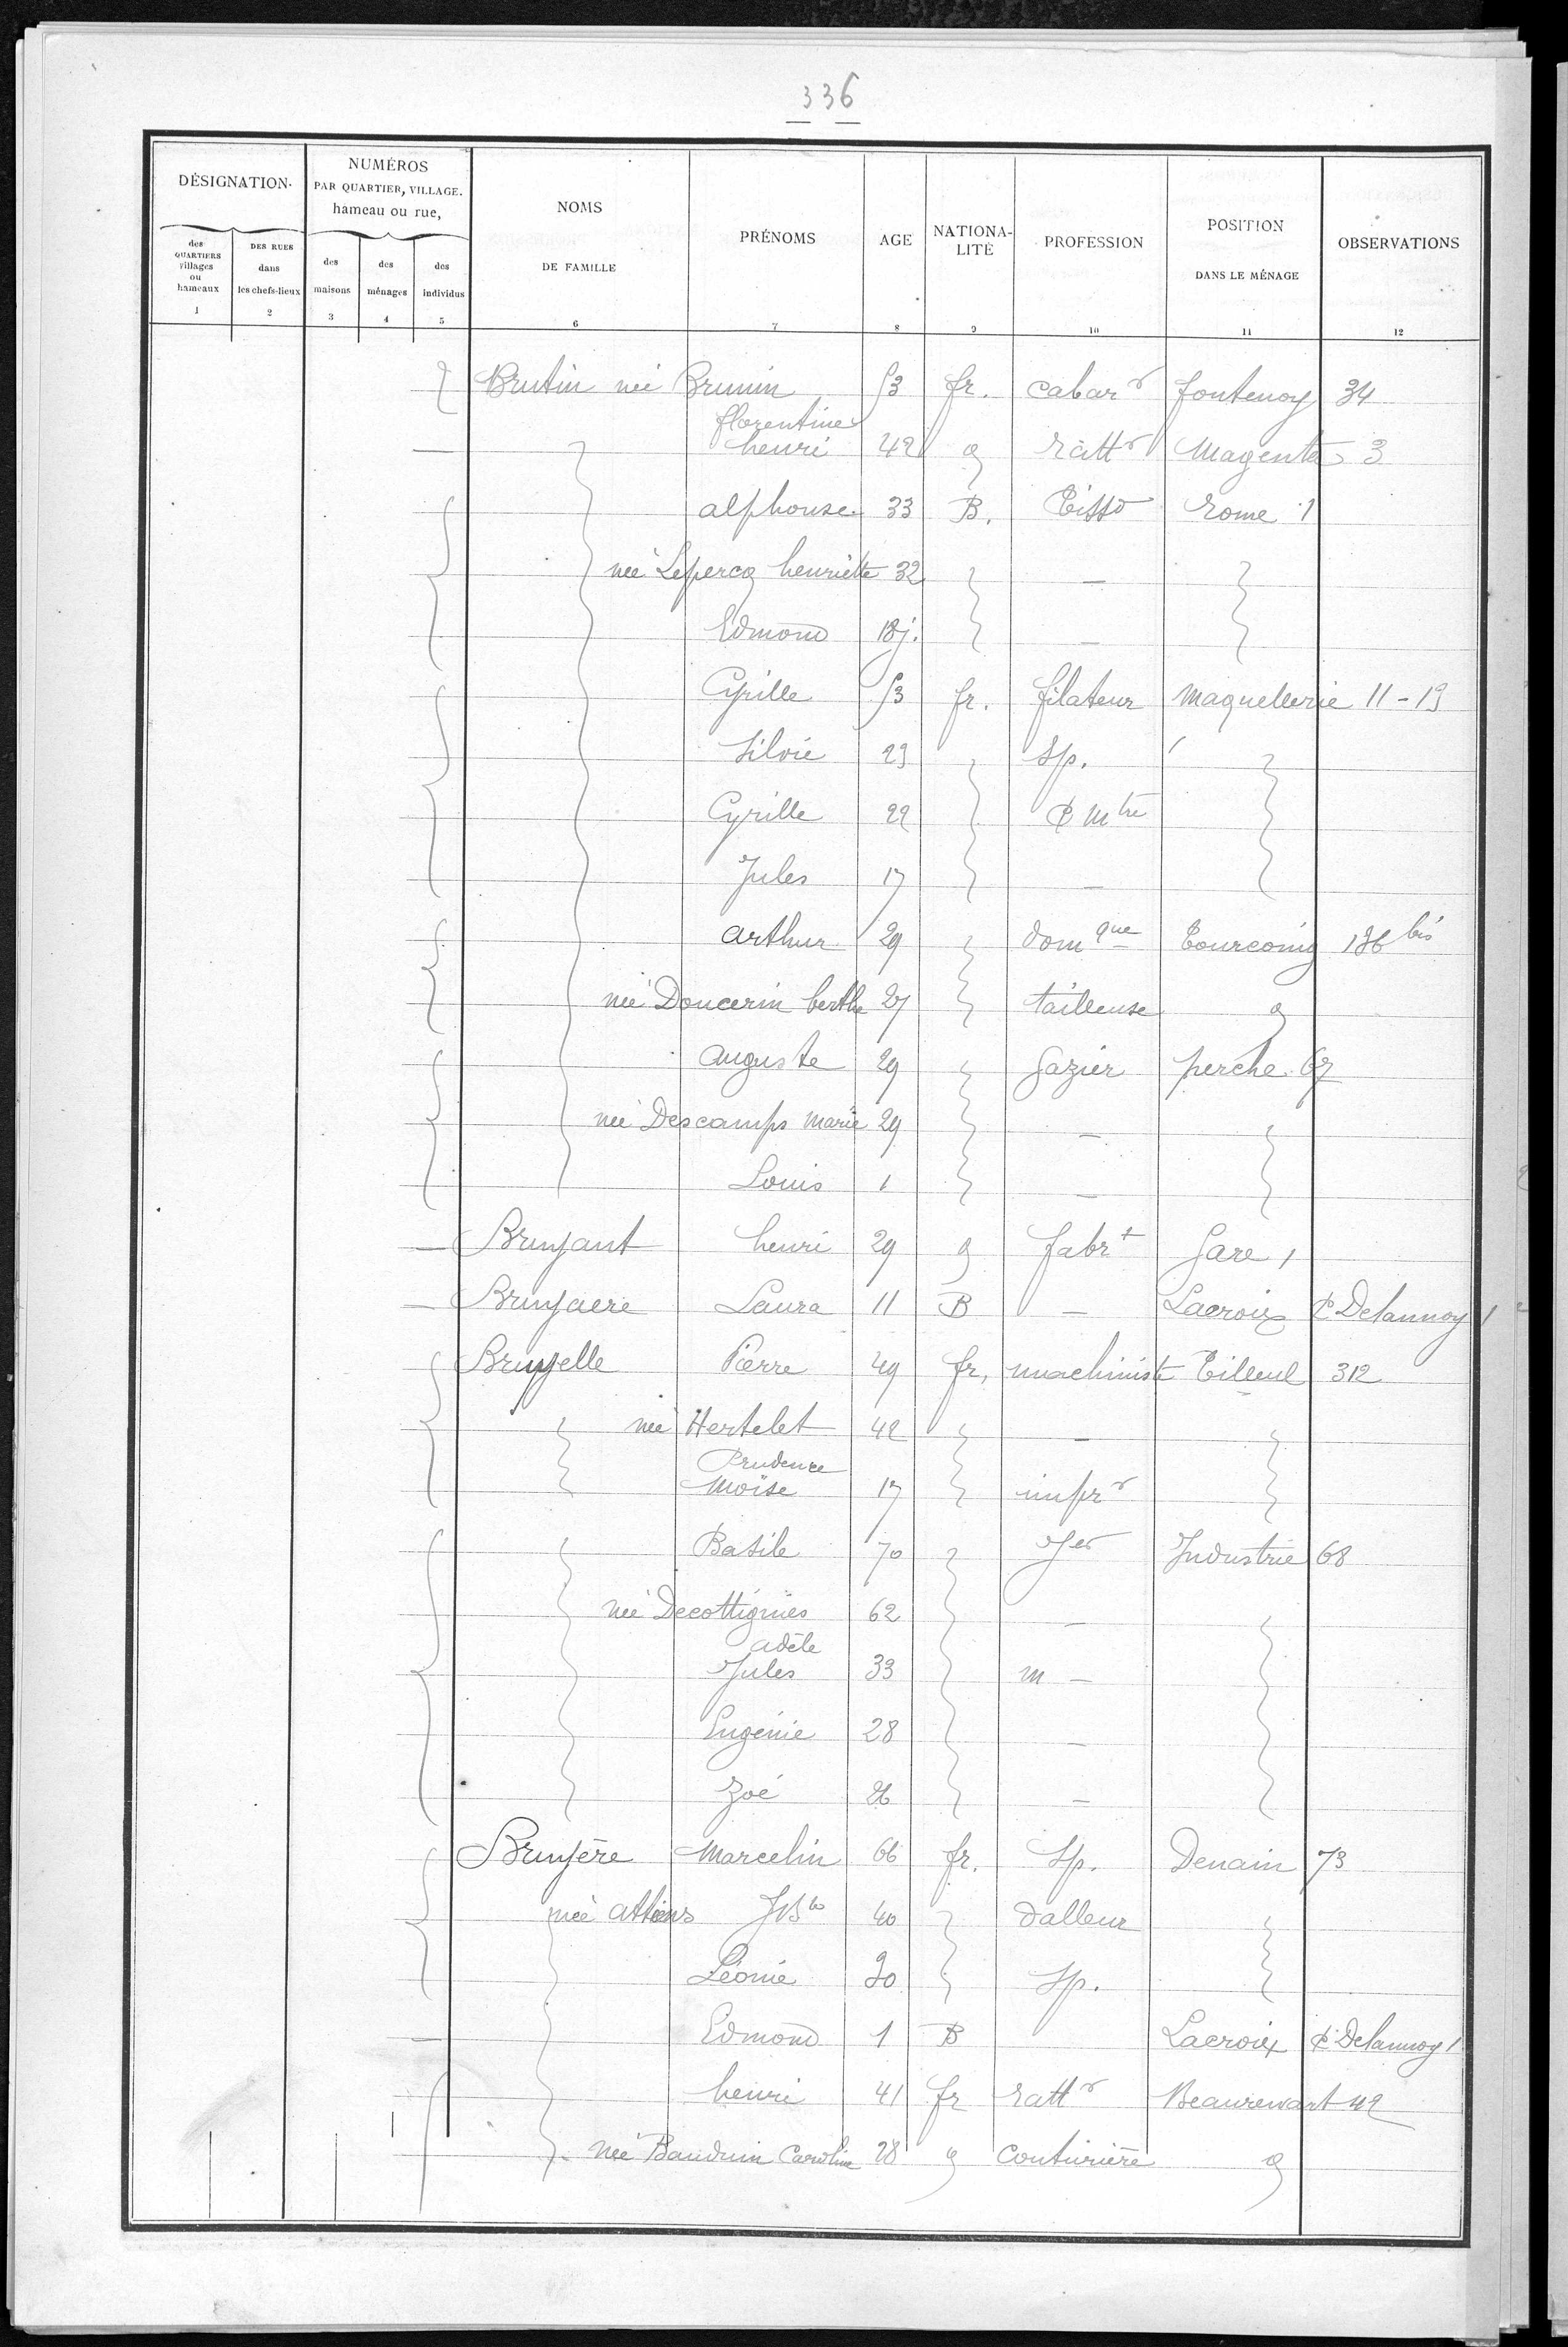 336
DÉSIGNATION
NUMÉROS
PAR QUARTIER, VILLAGE.
hameau ou rue,
NOMS
DE FAMILLE
PRÉNOMS
AGE
NATIONA-
LITÉ
PROFESSION
POSITION
DANS LE MÉNAGE
OBSERVATIONS
des
QUARTIERS
villages
ou
hameaux
DES RUES
dans
les chefs-lieux
des
maisons
des
ménages
des
individus
1 2 3 4 5 6 7 8 9 10 11 12
Brutin née Brunin 53 fr. cabar r fontenoy 34
florentine
henri 42 ratt r Magenta 3
alphonse 33 B. Tiss d rome 1
née Lepercq henriette 32 —
Edmond 18 j. —
Cyrille 53 fr. filateur Maquellerie 11-13
Silvie 23 Sp.
Cyrille 22 C Mtre
Jules 17 —
arthur 29 dom que Tourcoing 136 bis
née Doucerin berthe 27 tailleuse
auguste 29 gazier perche 67
née Descamps Marie 29 —
Louis 1 —
Bruyant henri 29 fabr t gare 1
Bruyaere Laura 11 B — Lacroix C Delannoy 1
Bruyelle Pierre 49 fr. machiniste Tilleul 312
née Hertelet 42 —
Prudence
Moïse 17 impr r
Basile 70 Jer Industrie 68
née Decottignies 62 —
adèle
Jules 33 m —
Eugénie 28 —
Zoé 26 —
Bruyère Marcelin 66 fr. Sp. Denain 73
née JBte 40 dalleur
Léonie 30 Sp.
Edmond 1 B Lacroix C Delannoy 1
henri 41 fr ratt r Beaurewart 42
née Bauduin Caroline 28 couturière